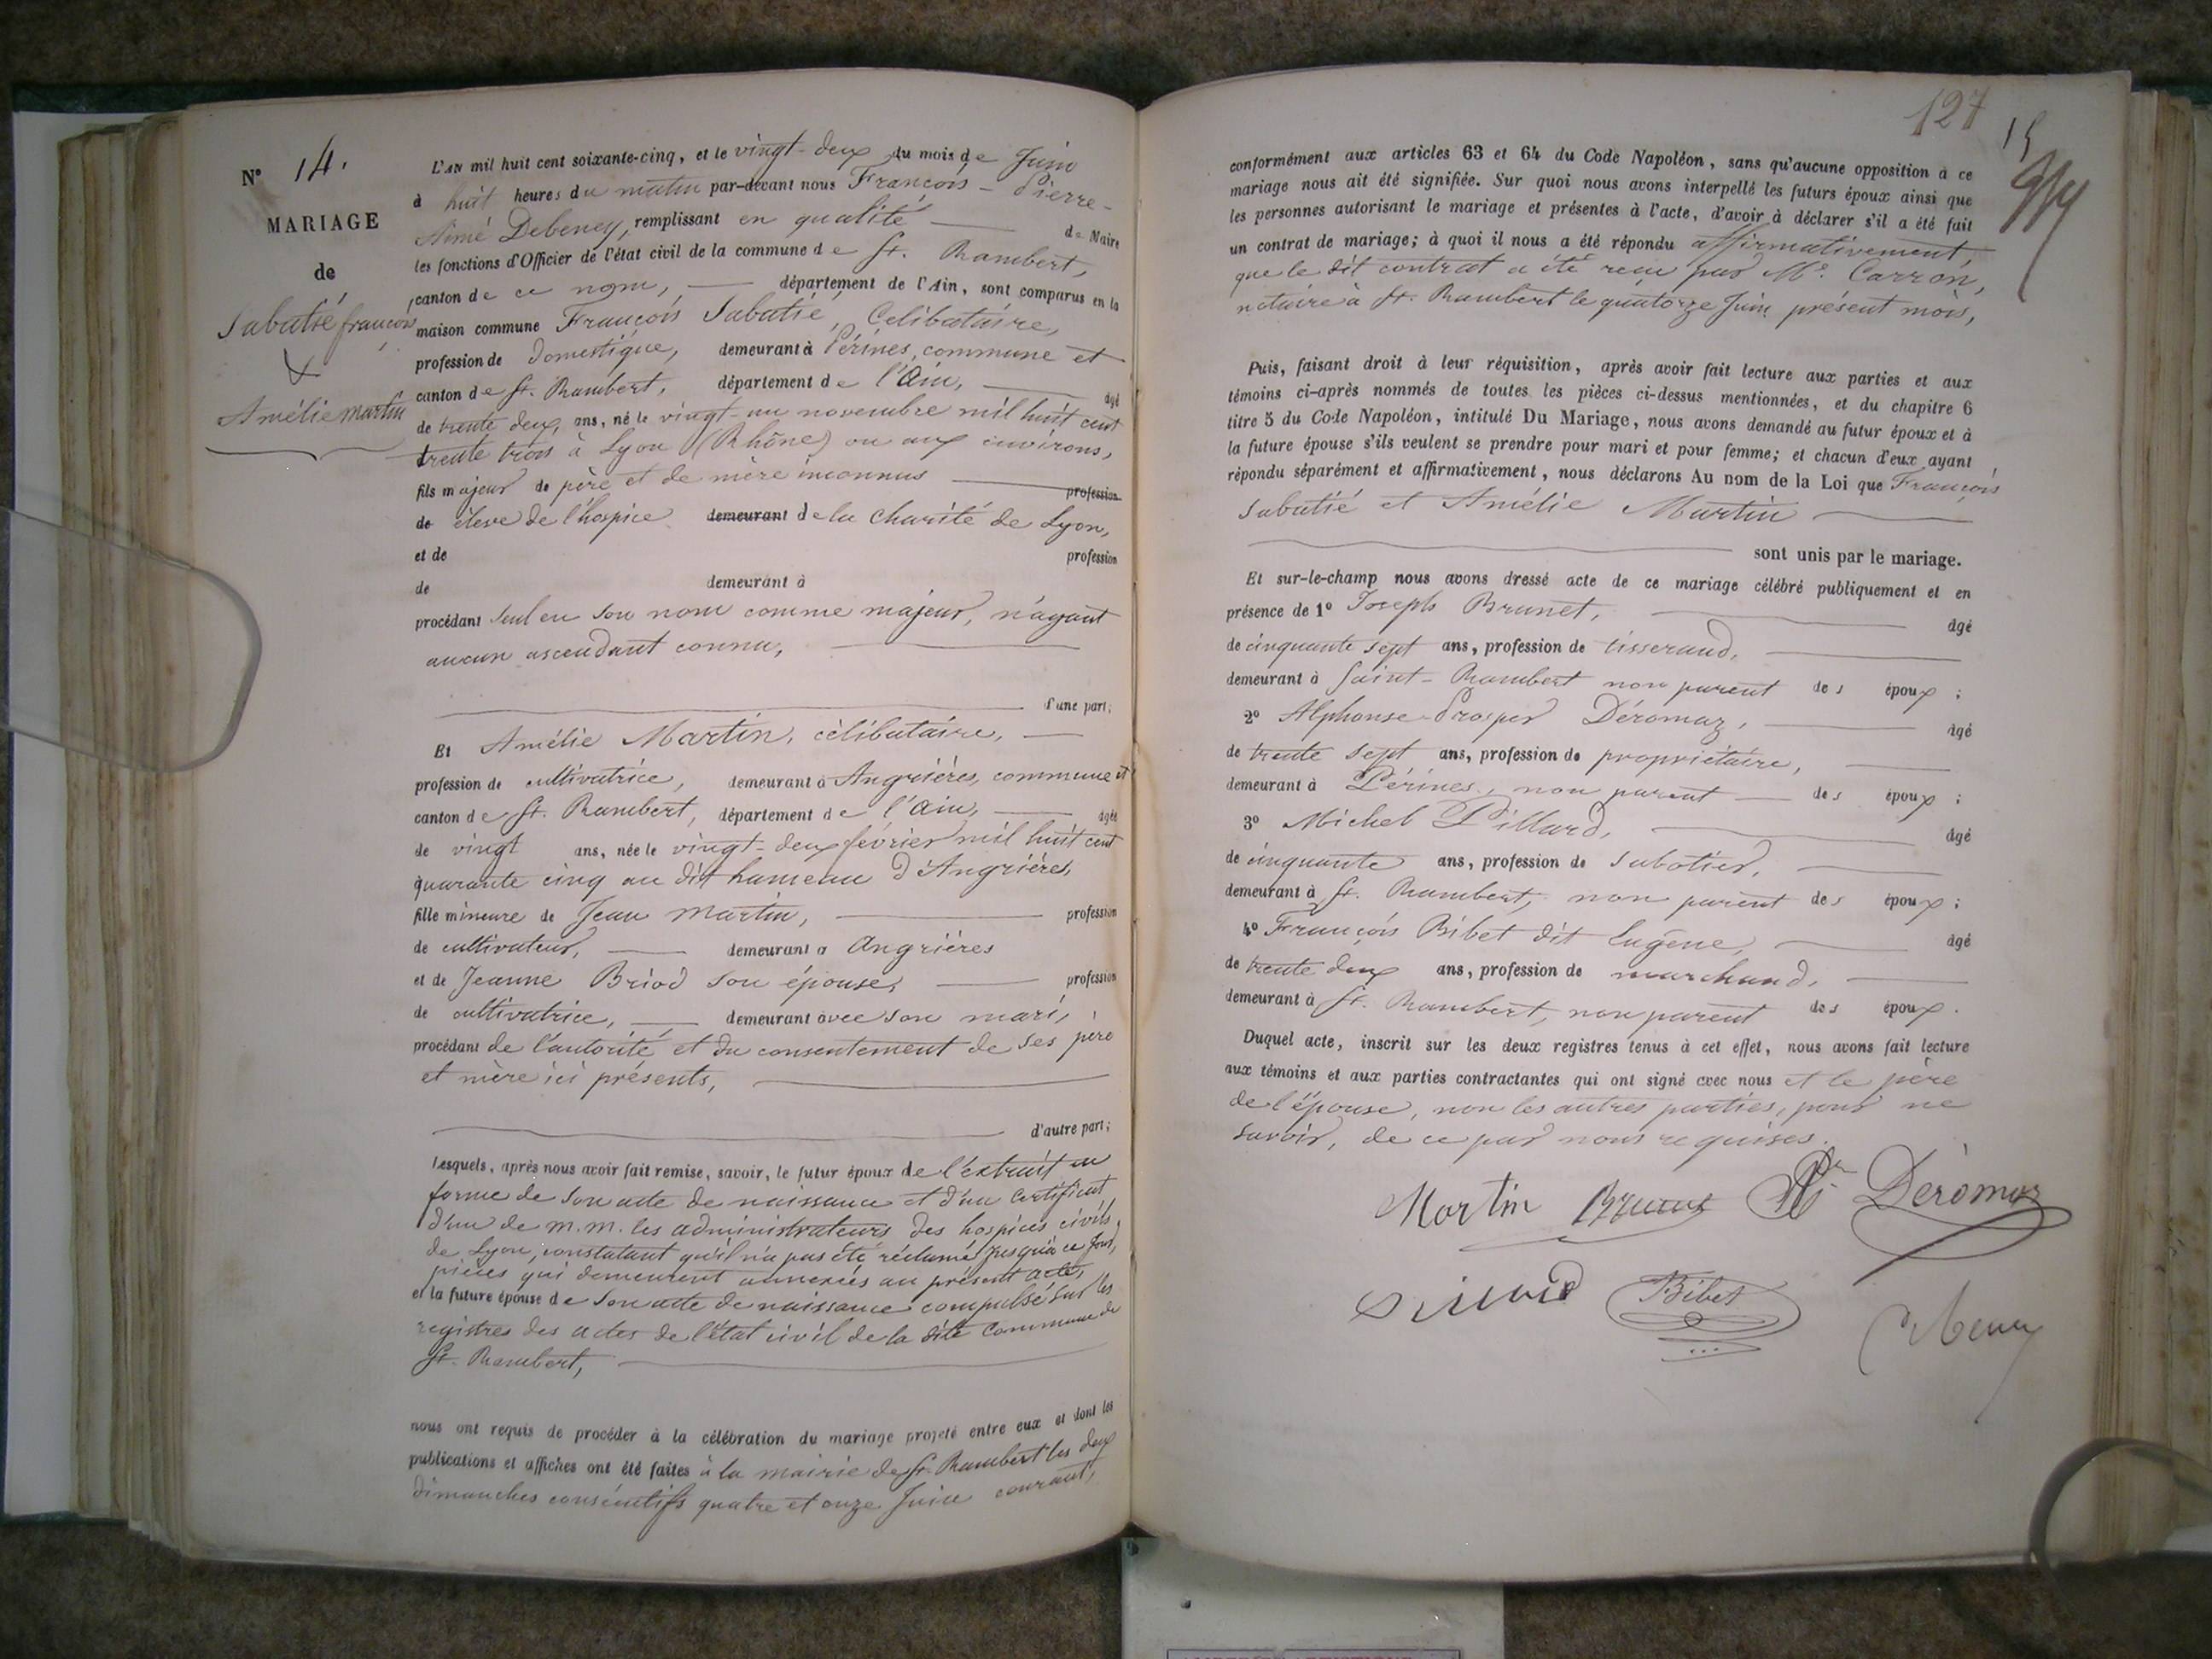 N° 14.
MARIAGE
de
Sabatié françois
×
Amélie martin
L'AN mil huit cent soixante-cinq, et le vingt-deux du mois de Juin
à huit heures du matin par-devant nous François-Pierre-
Aimé Debeney, remplissant en qualité de Maire
les fonctions d'Officier de l'état civil de la commune de St. Rambert,
canton de ce nom, département de l'Ain, sont comparus en la
maison commune François Sabatié, Célibataire,
profession de domestique, demeurant à Pérines, commune et
canton de St. Rambert, département de l'Ain, âgé
de trente deux, ans, né le vingt-un novembre mil huit cent
trente trois à Lyon (Rhône) ou aux environs,
fils majeur de père et de mère inconnus profession
de élève de l'hospice demeurant de la Charité de Lyon,
et de profession
de demeurant à
procédant seul en son nom comme majeur, n'ayant
aucun ascendant connu,
d'une part;
Et Amélie Martin, célibataire,
profession de cultivatrice, demeurant à Angrières, commune et
canton de St. Rambert, département de l'Ain, âgée
de vingt ans, née le vingt-deux février mil huit cent
quarante cinq au dit hameau d'Angrières,
fille mineure de Jean Martin, profession
de cultivateur, demeurant à Angrières
et de Jeanne Briod son épouse, profession
de cultivatrice, demeurant avec son mari,
procédant de l'autorité et du consentement de ses père
et mère ici présents,
d'autre part;
Lesquels, après nous avoir fait remise, savoir, le futur époux de l'extrait en
forme de son acte de naissance et d'un certificat
d'un de m.m. les administrateurs des hospices civils
de Lyon, constatant qu'il n'a pas été réclamé jusqu'à ce jour,
pièces qui demeurent annexées au présent acte,
et la future épouse de son acte de naissance compulsé sur les
registres des actes de l'état civil de la dite commune de
St. Rambert,
nous ont requis de procéder à la célébration du mariage projeté entre eux et dont les
publications et affiches ont été faites à la mairie de St. Rambert les deux
dimanches consécutifs quatre et onze Juin courant,
127
15
conformément aux articles 63 et 64 du Code Napoléon, sans qu'aucune opposition à ce
mariage nous ait été signifiée. Sur quoi nous avons interpellé les futurs époux ainsi que
les personnes autorisant le mariage et présentes à l'acte, d'avoir à déclarer s'il a été fait
un contrat de mariage; à quoi il nous a été répondu affirmativement,
que le dit contrat a été reçu par Me. Carron,
notaire à St. Rambert le quatorze Juin présent mois,
Puis, faisant droit à leur réquisition, après avoir fait lecture aux parties et aux
témoins ci-après nommés de toutes les pièces ci-dessus mentionnées, et du chapitre 6
titre 5 du Code Napoléon, intitulé Du Mariage, nous avons demandé au futur époux et à
la future épouse s'ils veulent se prendre pour mari et pour femme; et chacun d'eux ayant
répondu séparément et affirmativement, nous déclarons Au nom de la Loi que François
Sabatié et Amélie Martin
sont unis par le mariage.
Et sur-le-champ nous avons dressé acte de ce mariage célébré publiquement et en
présence de 1° Joseph Brunet, âgé
de cinquante sept ans, profession de tisserand,
demeurant à Saint-Rambert non parent des époux;
2° Alphonse-Prosper Déromaz, âgé
de trente sept ans, profession de propriétaire,
demeurant à Pérines, non parent des époux;
3° Michel Pillard, âgé
de cinquante ans, profession de sabotier,
demeurant à St. Rambert, non parent des époux;
4° François Bibet dit Eugène, âgé
de trente deux ans, profession de marchand,
demeurant à St. Rambert, non parent des époux.
Duquel acte, inscrit sur les deux registres tenus à cet effet, nous avons fait lecture
aux témoins et aux parties contractantes qui ont signé avec nous et le père
de l'épouse, non les autres parties, pour ne
savoir, de ce par nous requises.
Martin Brunet Déromaz
Bibet